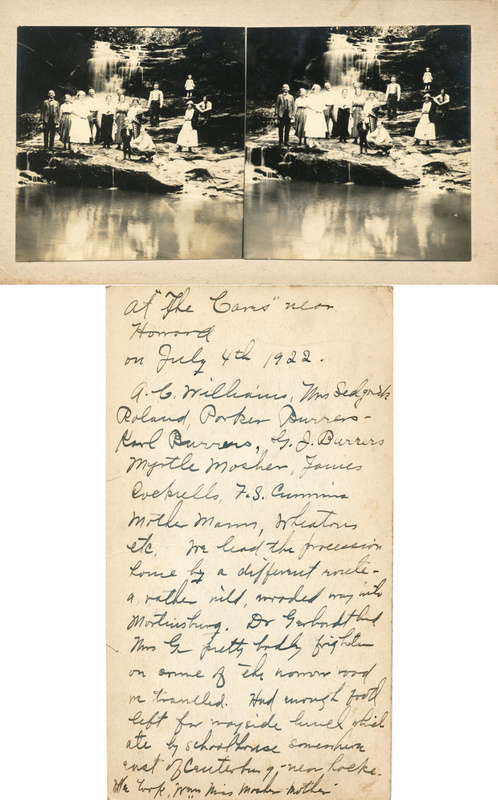 At "The Caves" near
Howard
on July 4th 1922.
A. C. Williams, Mrs Sedgwick
Roland, Parker Burrers -
Karl Burrers, G. J. Burrers
Myrtle Mosher, James
Cockrells, F. S. Cummins
Mother Mann, Wheatons
etc. We lead the procession
home by a different route -
a rather wild, wooded way into
Martinsburg. Dr Gerhardt had
Mrs G pretty badly frighten
on some of the narrow road
we travelled. Had enough food
left for wayside lunch which
ate by schoolhouse somewhere
east of Centerburg - near Locke.
We took Miss Mosher Mother